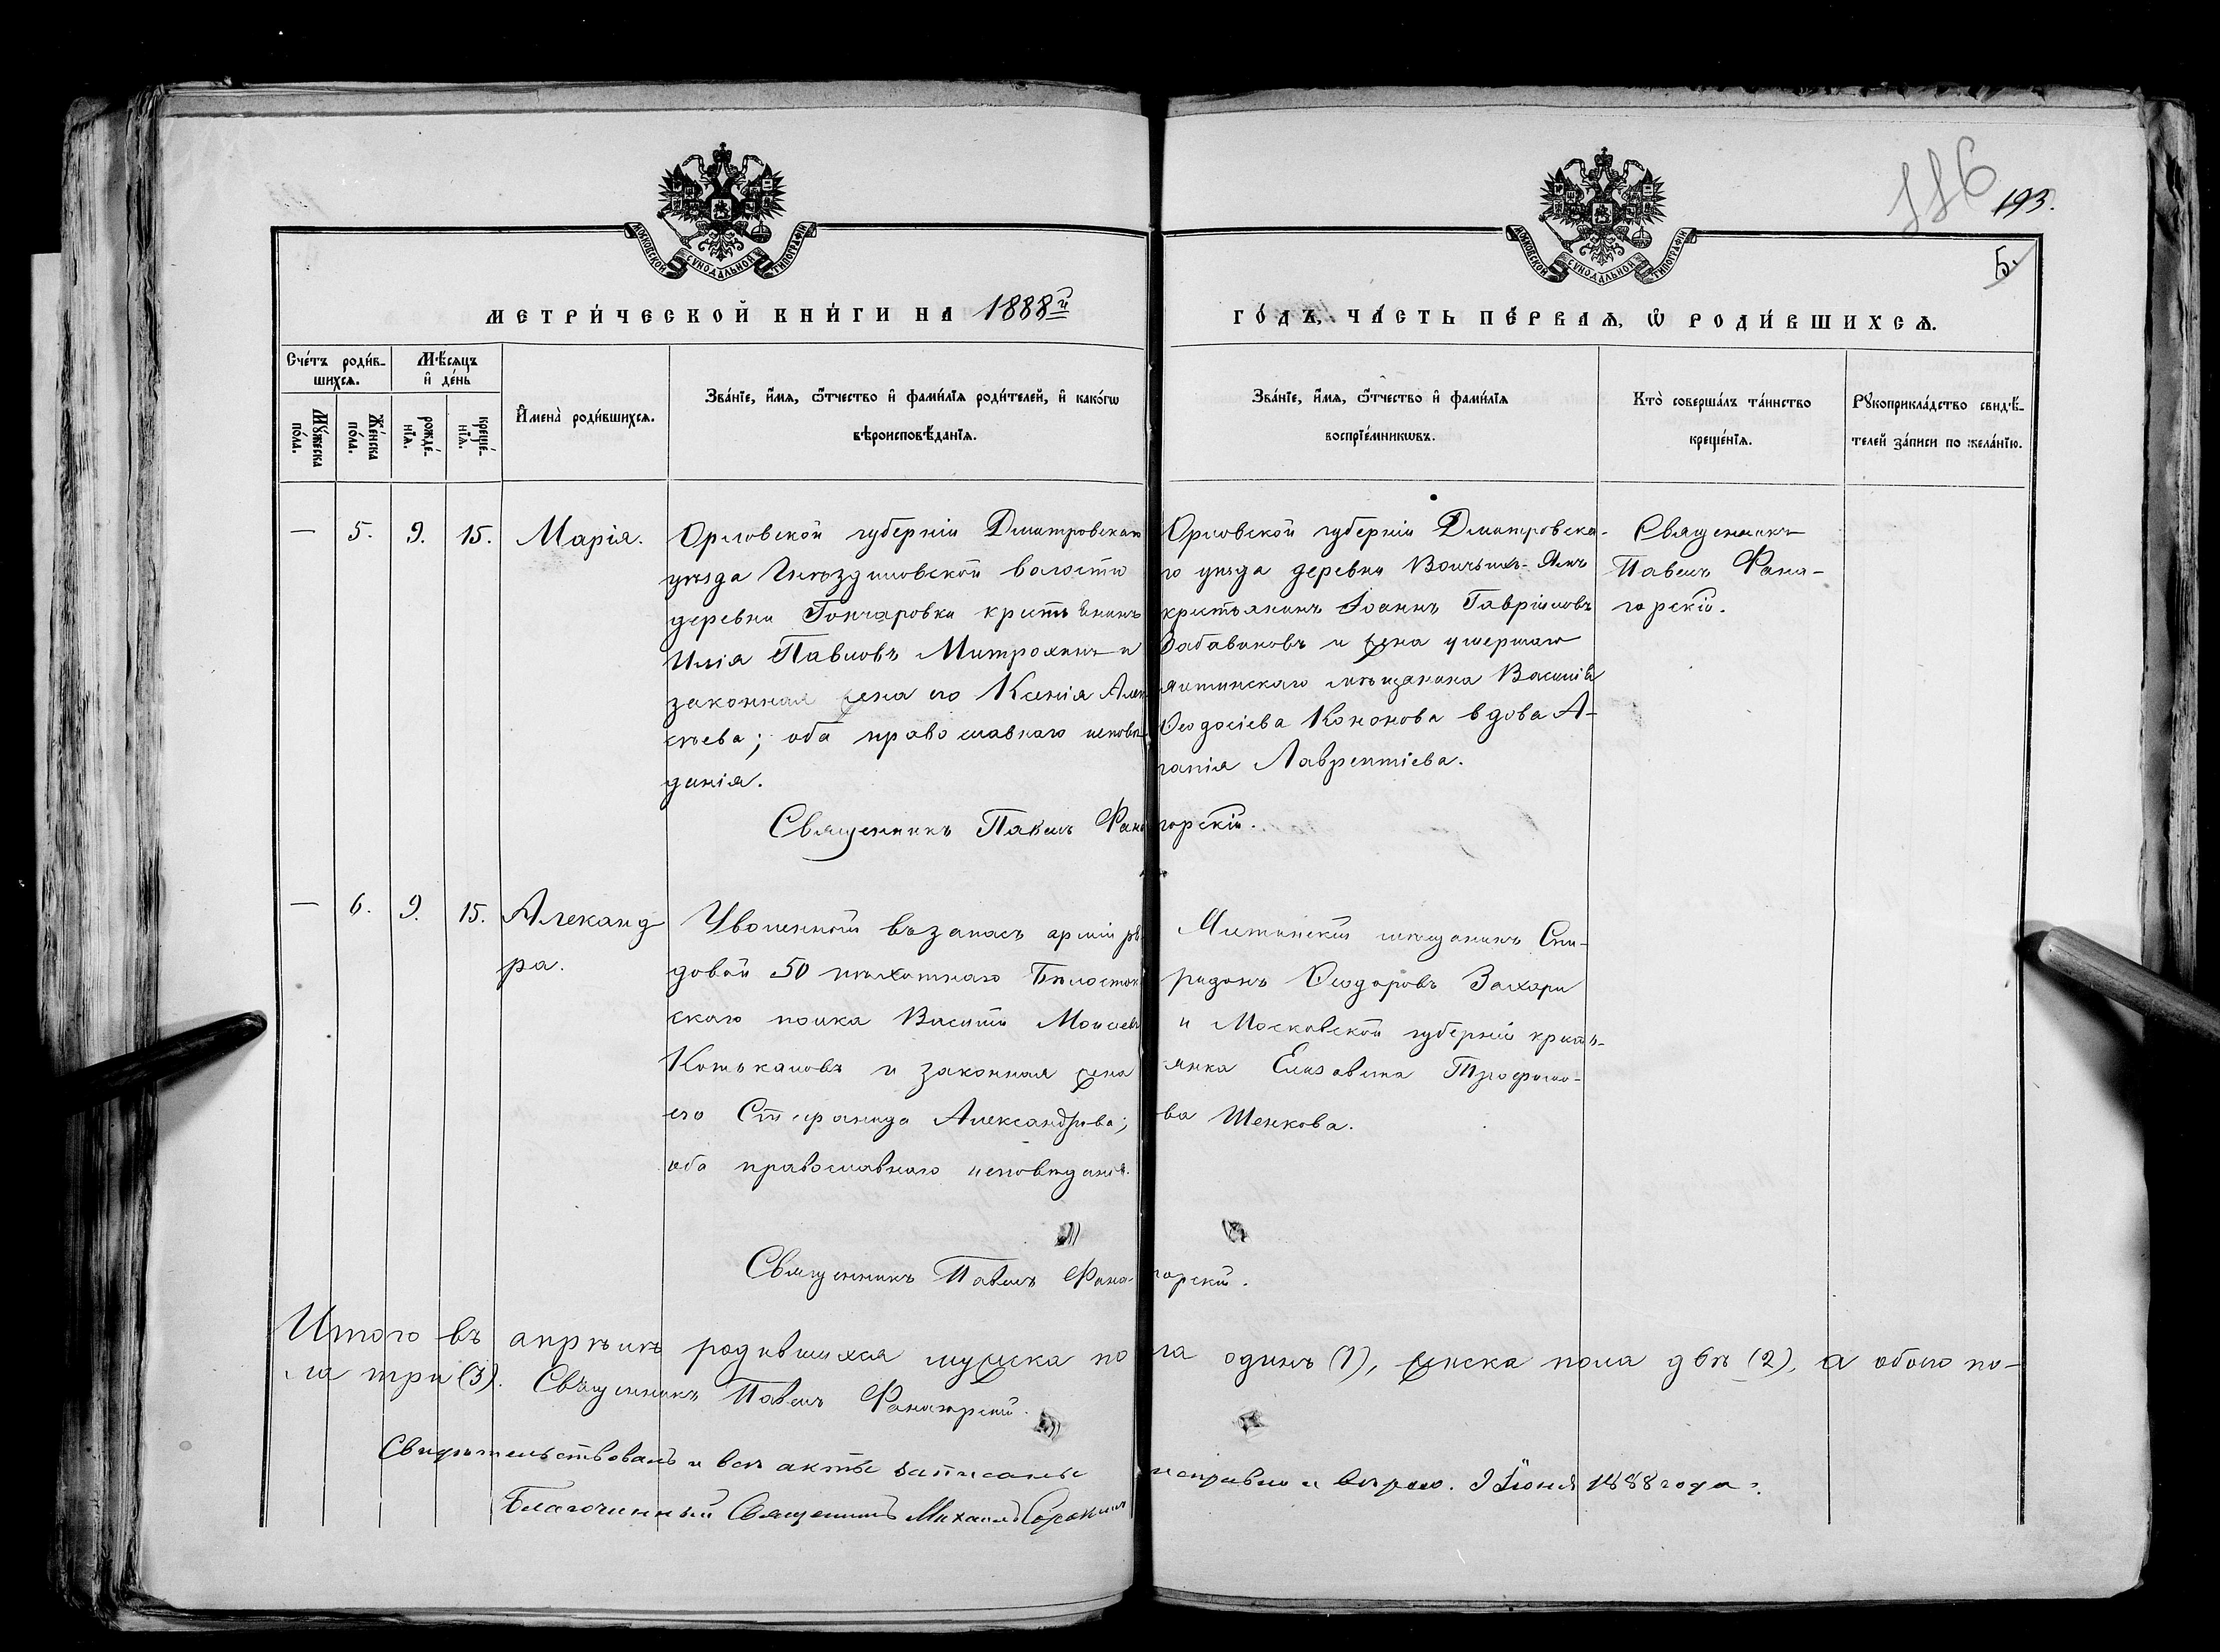 116
193.
5.
МОСКОВСКОЙ СѴНОДАЛЬНОЙ ТИПОГРАФІИ
МОСКОВСКОЙ СѴНОДАЛЬНОЙ ТИПОГРАФІИ
МЕТРИ́ЧЕСКОЙ КНИ́ГИ НА 1888й
ГО́ДЪ, ЧА́СТЬ ПЕ́РВАЯ, Ѽ РОДИ́ВШИХСЯ.
Сче́тъ роди́в-
шихся.
Мѣ́сяцъ
и҆ де́нь
Му́жеска
по́ла.
Же́нска
по́ла.
рожде́-
нїя.
креще́-
нїя.
И҆мена̀ роди́вшихся.
Зва́нїе, и҆́мя, ѻ҆́тчество и҆ фами́лїя роди́телей, и҆ како́гѡ
вѣроисповѣ́данїя.
Зва́нїе, и҆́мя, ѻ҆́тчество и҆ фами́лїя
воспрїе́мникѡвъ.
Кто̀ соверша́лъ та́инство
креще́нїя.
Рꙋкоприкла́дство свидѣ́-
телей за́писи по жела́нїю.
— 5. 9. 15. Марія.
Орловской губерніи Дмитровскаго
уѣзда Гнѣздиловской волости
деревни Гончаровки крестьянинъ
Илія Павловъ Митрохинъ и
законная жена его Ксенія Алек
сѣева; оба православнаго исповѣ-
данія.
Орловской губерніи Дмитровска-
го уѣзда деревни Волчьихъ-Ямъ
крестьянинъ Іоаннъ Гавріиловъ
Забавиковъ и жена умершаго
ялтинскаго мѣщанина Василія
Ѳеодосіева Кононова вдова А-
гапія Лаврентіева.
Священникъ
Павелъ Фана-
горскій.
Священникъ Павелъ Фанагорскій.
— 6. 9. 15. Александ
ра.
Уволенный въ запасъ арміи ря-
довой 50 пѣхотнаго Бѣлосток
скаго полка Василій Моисеевъ
Котькаловъ и законная жена
его Стефанида Александрова;
оба православнаго исповѣданія.
Ялтинскій мѣщанинъ Спи-
ридонъ Ѳеодоровъ Захари
и Московской губерніи кресть-
янка Елизавета Трофимо-
ва Шенкова.
Священникъ Павелъ Фана-горскій.
Итого въ апрѣлѣ родившихся мужска по ла одинъ (1), женска пола двѣ (2), а обоего по-
ла три (3). Священникъ Павелъ Фанагорскій.
Свидѣтельствовалъ и всѣ акты записаны исправно и вѣрно. 9 Іюня 1888 года.
Благочинный Священникъ Михаилъ Сорокинъ